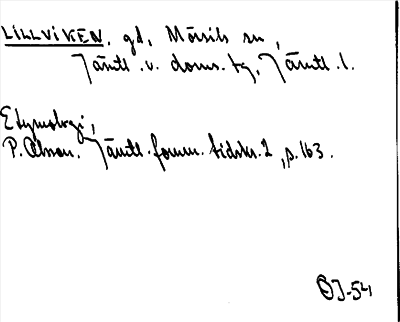 LILLVIKEN, gd, Mörsils sn,
Jämtl. v. doms. tg, Jämtl. l.
Etymologi,
P. Olsson. Jämtl. fornm. tidskr. 2, s. 163.
OJ-54